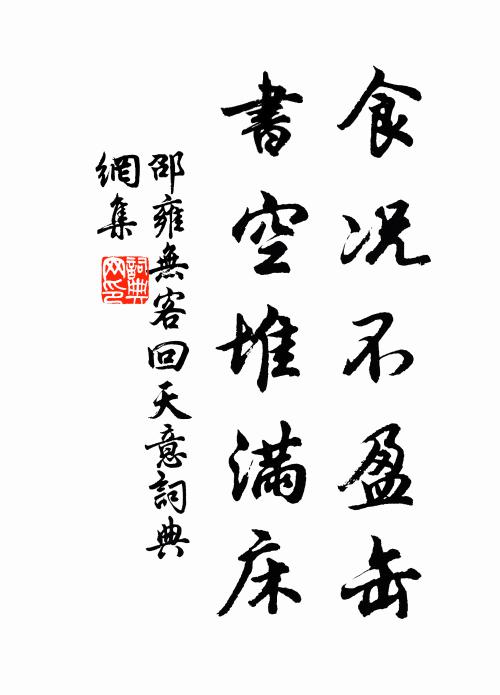 食况不盈缶
書空堆满床
邵雍無客回天意詞典
網集
詞典
网印